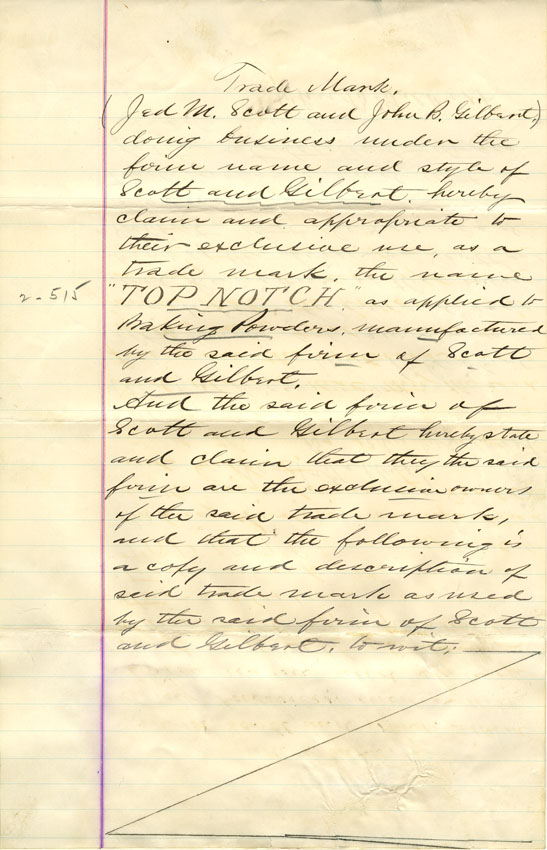 Trade Mark.
(Jed M. Scott and John B. Gilbert,)
doing business under the
firm name and style of
Scott and Gilbert, hereby
claim and appropriate to
their exclusive use, as a
trade mark, the name
2-515
"TOP NOTCH" as applied to
Baking Powders, manufactured
by the said firm of Scott
and Gilbert.
And the said firm of
Scott and Gilbert hereby state
and claim that they the said
firm are the exclusive owners
of the said trade mark,
and that the following is
a copy and description of
said trade mark as used
by the said firm of Scott
and Gilbert, to wit: